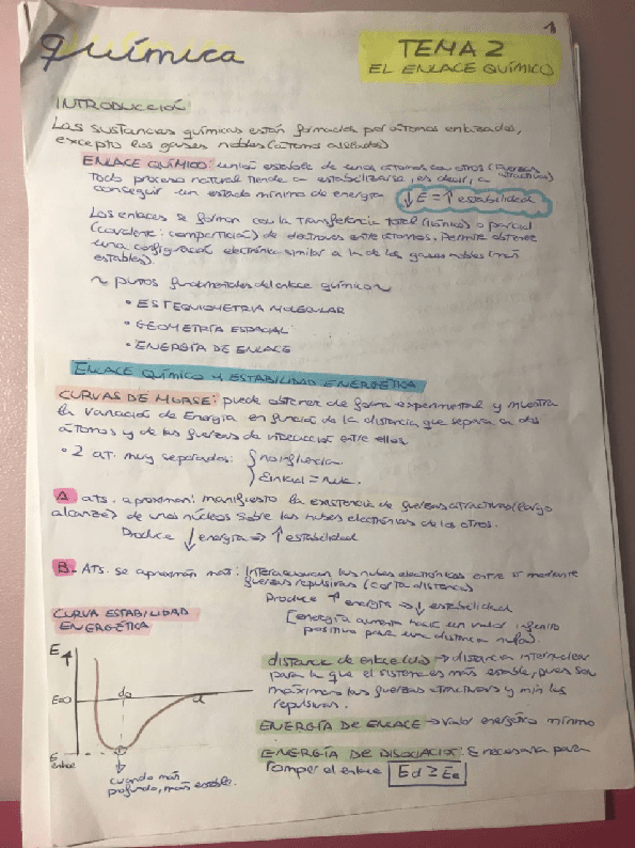 1
Química
TEMA 2
EL ENLACE QUÍMICO
INTRODUCCIÓN
Las sustancias químicas están formadas por átomos enlazados,
excepto los gases nobles (átomos aislados)
ENLACE QUÍMICO: unión estable de unos átomos con otros (fuerzas atractivas)
Todo proceso natural tiende a estabilizarse, es decir, a
conseguir un estado mínimo de energía ↓E = ↑ estabilidad
Los enlaces se forman con la transferencia total (iónico) o parcial
(covalente: compartición) de electrones entre átomos. Permite obtener
una configuración electrónica similar a la de los gases nobles (más
estables).
~ puntos fundamentales del enlace químico ~
• ESTEQUIOMETRIA MOLECULAR
• GEOMETRÍA ESPACIAL
• ENERGÍA DE ENLACE
ENLACE QUÍMICO Y ESTABILIDAD ENERGÉTICA
CURVAS DE MORSE: puede obtener de forma experimental y muestra
la variación de Energía en función de la distancia que separa a dos
átomos y de las fuerzas de interacción entre ellos
• 2 at. muy separados: { no influencia
A ats. aproximan: manifiesto la existencia de fuerzas atractivas (largo
alcance) de unos núcleos sobre las nubes electrónicas de los otros.
Produce ↓ energía => ↑ estabilidad
B- Ats. se aproximan más: Interaccionan las nubes electrónicas entre sí mediante
fuerzas repulsivas (corta distancia)
Produce ↑ energía => ↓ estabilidad
[energía aumenta hasta un valor infinito
positivo para una distancia nula).
CURVA ESTABILIDAD
ENERGÉTICA
E
E=0
do
d
E enlace
cuando más
profundo, más estable.
distancia de enlace (do) → distancia internuclear
para la que el sistema es más estable, pues son
máximas las fuerzas atractivas y mín las
repulsivas.
ENERGÍA DE ENLACE → valor energético mínimo
ENERGÍA DE DISOCIACIÓN: E necesaria para
romper el enlace Ed ≥ Ee